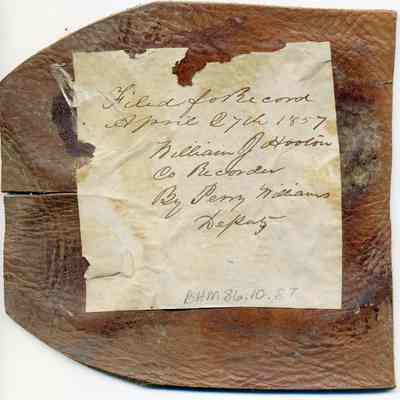 Filed for Record
April 27th 1857
William J Hooton
Co Recorder
By Perry Williams
Deputy
BHM 86.10.87